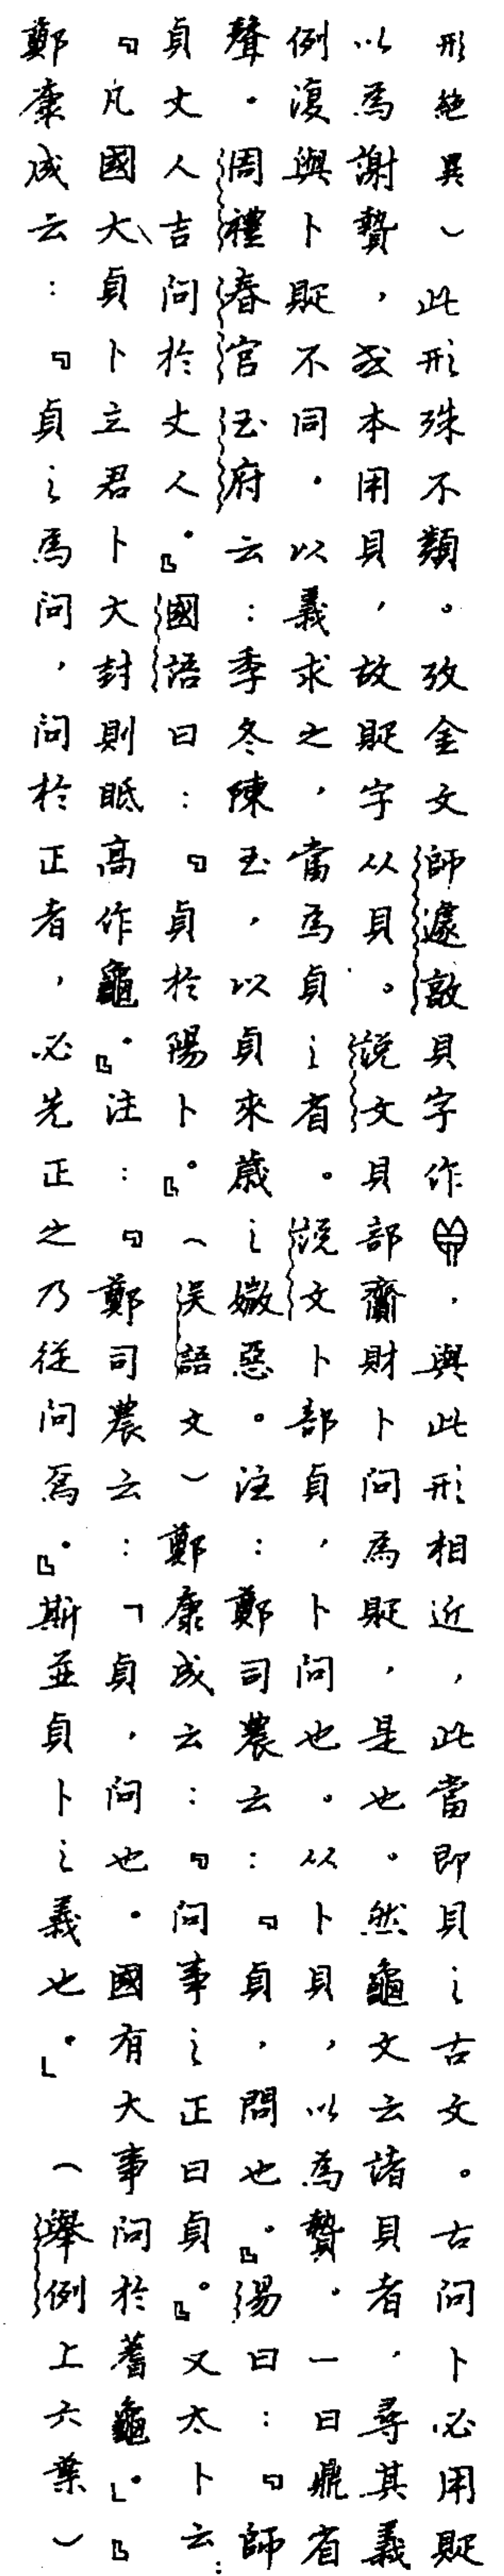 形絕異）此形殊不類。攷金文師遽敦貝字作，與此形相近，此當即貝之古文。古問卜必用貶
以為謝贄，或本用貝，故貶字从貝。說文貝部齎財卜問為貶，是也。然龜文云諸貝者，尋其義
例復與卜貶不同。以義求之，當為貞之省。說文卜部貞，卜問也。从卜貝，以為贄。一曰鼎省
聲。周禮春官玉府云：季冬陳玉，以貞來歲之媺惡。注：鄭司農云：『貞，問也。』易曰：『師
貞丈人吉問於丈人。』國語曰：『貞於陽卜。』（吳語文）鄭康成云：『問事之正曰貞。』又大卜云：
『凡國大貞卜立君卜大封則眡高作龜。』注：『鄭司農云：「貞，問也。國有大事問於蓍龜。」』
鄭康成云：『貞之為問，問於正者，必先正之乃從問焉。』斯並貞卜之義也。」（舉例上六葉）